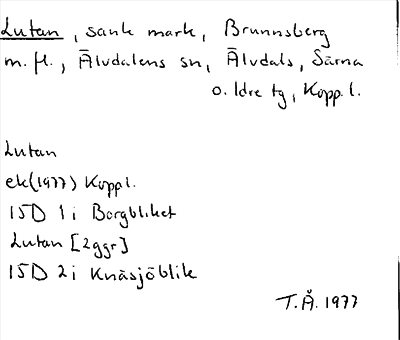 Lutan, sank mark, Brunnsberg
m.fl., Älvdalens sn, Älvdals, Särna
o. Idre tg, Kopp.l.
Lutan
ek(1977) Koppl.
15D 1i Borgbliket
Lutan [2ggr]
15D 2i Knäsjöblik
T.Å. 1977